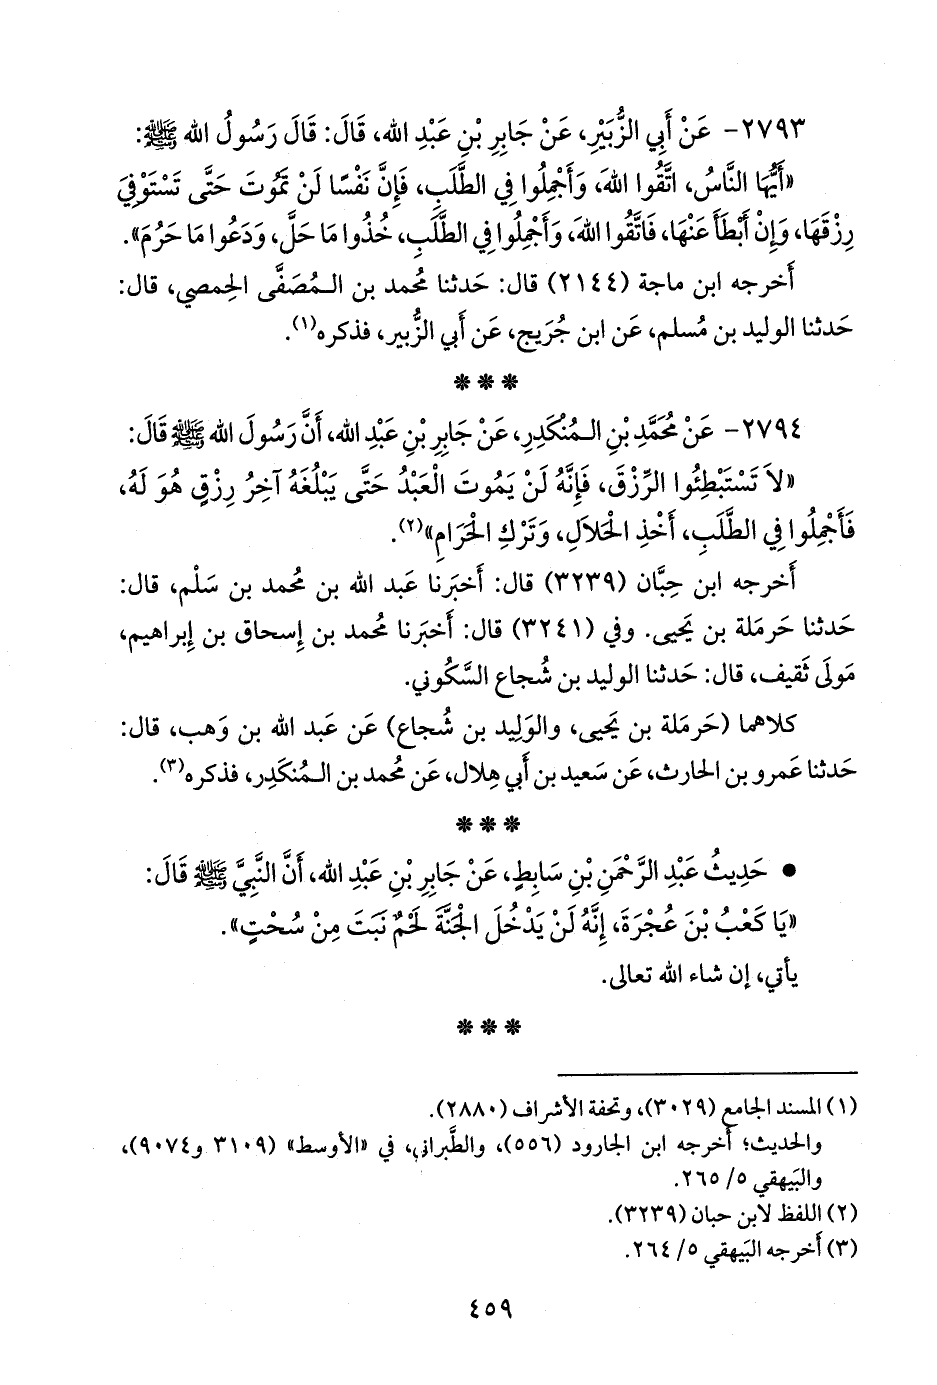 ٢٧٩٣- عَنْ أَبِي الزُّبَيْرِ، عَنْ جَابِرِ بْنِ عَبْدِ الله، قَالَ: قَالَ رَسُولُ الله ﷺ:
«أَيُّهَا النَّاسُ، اتَّقُوا اللهَ، وَأَجْمِلُوا فِي الطَّلَبِ، فَإِنَّ نَفْسًا لَنْ تَمُوتَ حَتَّى تَسْتَوْفِيَ
رِزْقَهَا، وَإِنْ أَبْطَأَ عَنْهَا، فَاتَّقُوا اللهَ، وَأَجْمِلُوا فِي الطَّلَبِ، خُذُوا مَا حَلَّ، وَدَعُوا مَا حَرُمَ».
أَخرجه ابن ماجة (٢١٤٤) قال: حَدثنا مُحمد بن الـمُصَفَّى الحِمصي، قال:
حَدثنا الوليد بن مُسلم، عَن ابن جُرَيج، عَن أَبي الزُّبير، فذكره(١).
***
٢٧٩٤- عَنْ مُحَمَّدِ بْنِ الـمُنْكَدِرِ، عَنْ جَابِرِ بْنِ عَبْدِ الله، أَنَّ رَسُولَ الله ﷺ قَالَ:
«لاَ تَسْتَبْطِئُوا الرِّزْقَ، فَإِنَّهُ لَنْ يَمُوتَ الْعَبْدُ حَتَّى يَبْلُغَهُ آخِرُ رِزْقٍ هُوَ لَهُ،
فَأَجْمِلُوا فِي الطَّلَبِ، أَخْذِ الْحَلاَلِ، وَتَرْكِ الْحَرَامِ»(٢).
أَخرجه ابن حِبَّان (٣٢٣٩) قال: أَخبَرنا عَبد الله بن مُحمد بن سَلْم، قال:
حَدثنا حَرملة بن يَحيى. وفي (٣٢٤١) قال: أَخبَرنا مُحمد بن إِسحاق بن إِبراهيم،
مَولَى ثَقيف، قال: حَدثنا الوليد بن شُجاع السَّكُوني.
كلاهما (حَرملة بن يَحيى، والوَلِيد بن شُجاع) عَن عَبد الله بن وَهب، قال:
حَدثنا عَمرو بن الحارث، عَن سَعيد بن أَبي هِلال، عَن مُحمد بن الـمُنكَدِر، فذكره(٣).
***
• حَدِيثُ عَبْدِ الرَّحْمَنِ بْنِ سَابِطٍ، عَنْ جَابِرِ بْنِ عَبْدِ الله، أَنَّ النَّبِيَّ ﷺ قَالَ:
«يَا كَعْبُ بْنَ عُجْرَةَ، إِنَّهُ لَنْ يَدْخُلَ الْجَنَّةَ لَحْمٌ نَبَتَ مِنْ سُحْتٍ».
يأتي، إن شاء الله تعالى.
***
(١) المسند الجامع (٣٠٢٩)، وتحفة الأشراف (٢٨٨٠).
والحديث؛ أَخرجه ابن الجارود (٥٥٦)، والطَّبراني، في «الأوسط» (٣١٠٩ و٩٠٧٤)،
والبَيهقي ٥/ ٢٦٥.
(٢) اللفظ لابن حبان (٣٢٣٩).
(٣) أَخرجه البَيهقي ٥/ ٢٦٤.
٤٥٩